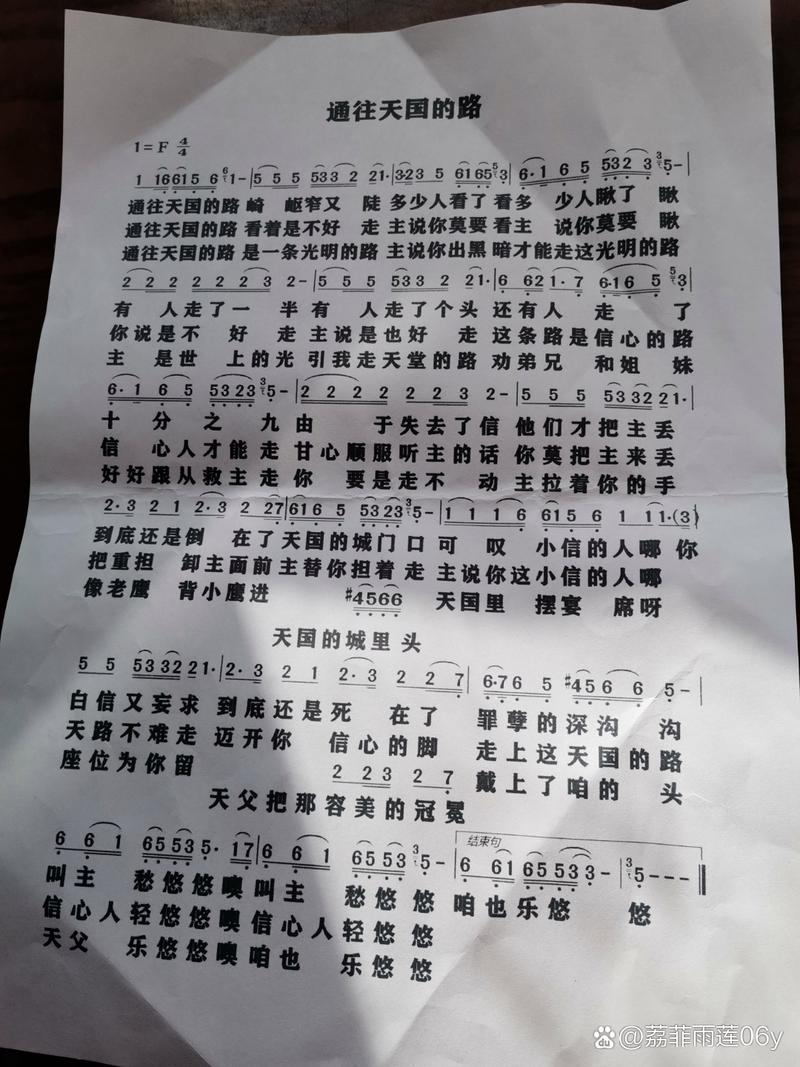 通往天国的路
1=F 4/4
1 16615 6 6 1- | 5 5 5 533 2 21· | 3·23 5 6165 5 3 | 6·1 6 5 532 3 3 5-
通往天国的路 崎 岖窄又 陡 多少人看了看多 少人瞅了 瞅
通往天国的路 看着是不好 走 主说你莫要看主 说你莫要 瞅
通往天国的路 是一条光明的路 主说你出黑暗才能走这光明的路
2 2 2 2 2 2 3 2- | 5 5 5 533 2 21· | 6 621·7 6·16 5 5 3
有 人走了一 半有 人走了个头 还有人 走 了
你说是不 好 走 主说是也好 走 这条路是信心的路
主 是世 上的光 引我走天堂的路 劝弟兄 和姐 妹
6·1 6 5 5323 3 5- | 2 2 2 2 2 2 3 2- | 5 5 5 533221·
十 分 之 九由 于失去了信 他们才把主丢
信 心人才能走 甘心顺服听主的话 你莫把主来丢
好好跟从救主走你 要是走不 动 主拉着你的手
2·3 2 1 2·3 2 27 | 616 5 5323 3 5- | 1 1 1 6 615 6 1 11·(3)
到底还是倒 在了天国的城门口可 叹 小信的人哪你
把重担 卸主面前主替你担着走 主说你这小信的人哪
像老鹰 背小鹰进 #4566 天国里 摆宴 席呀
天国的城里头
5 5 533221· | 2·3 2 1 2·3 2 2 7 | 6·76 5 #456 6 5-
白信又妄求 到底还是死 在了 罪孽的深沟 沟
天路不难走 迈开你 信心的脚 走上这天国的路
座位为你留 2 23 2 7 戴上了咱的 头
天父把那容美的冠冕
6 6 1 6553 5· 17 | 6 6 1 6553 3 5- | 结束句 6 61 65533- | 3 5---
叫主 愁悠悠噢叫主 愁悠悠 咱也乐悠 悠
信心人轻悠悠噢信心人轻悠悠
天父 乐悠悠噢咱也 乐悠悠
@荔菲雨莲06y